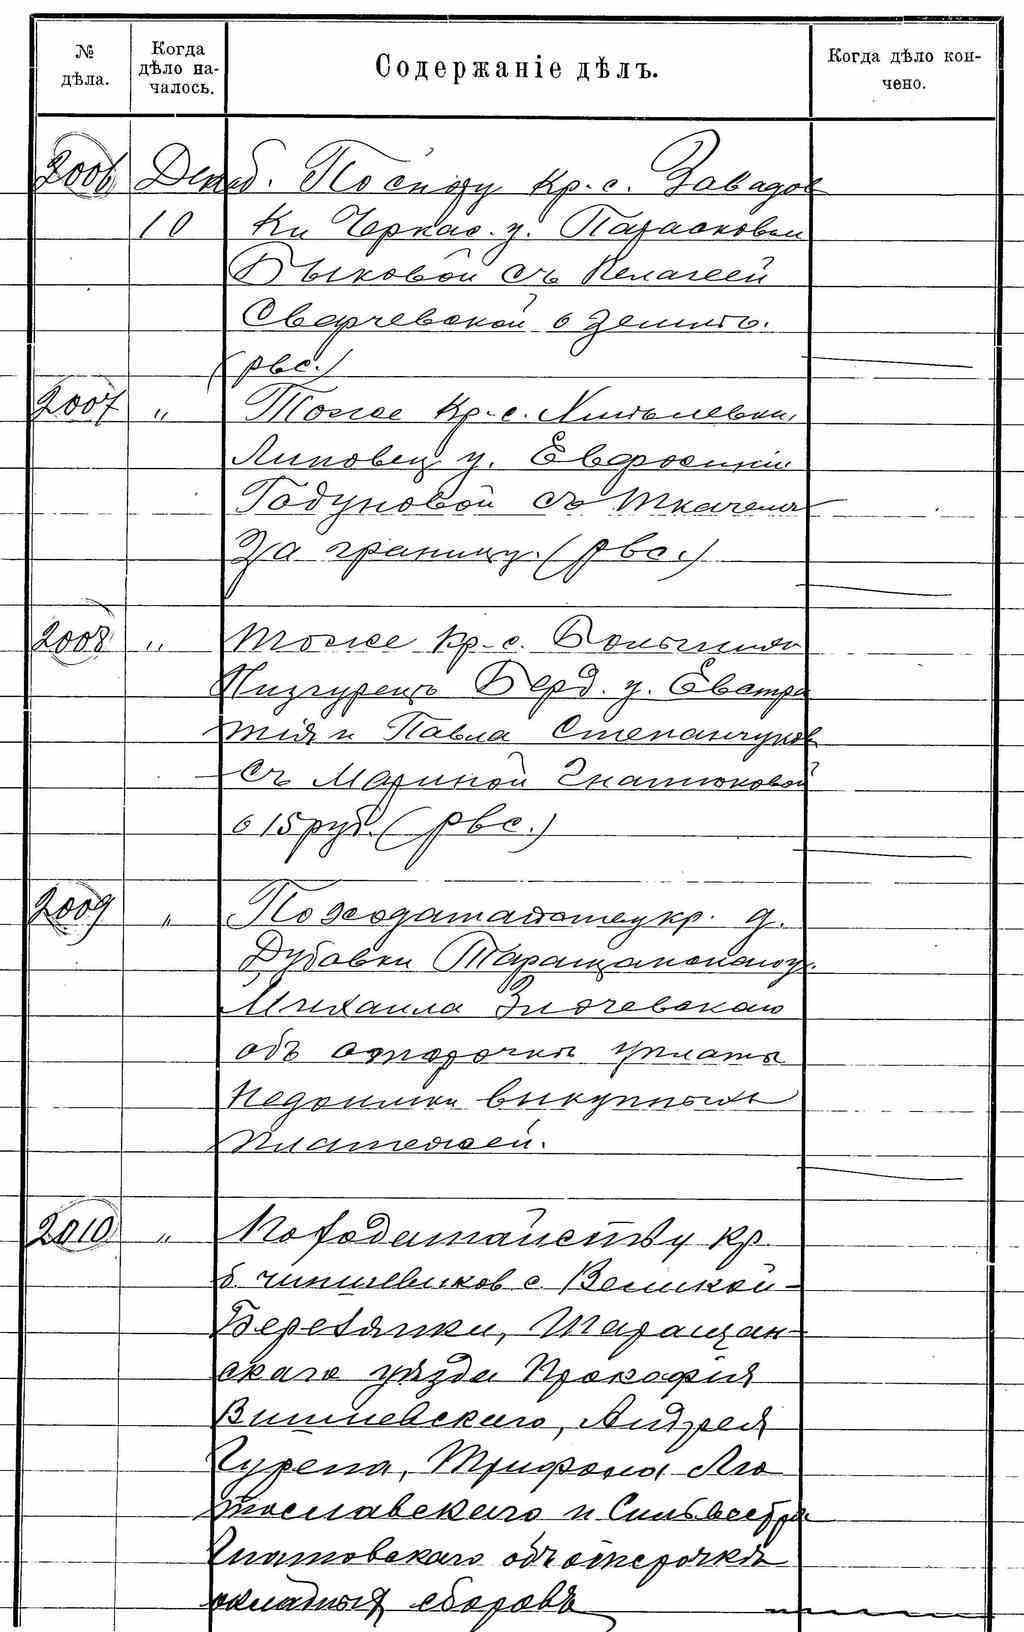 № дѣла.
Когда дѣло началось.
Содержаніе дѣлъ.
Когда дѣло кончено.
2006 Декаб. По спору кр. с. Завадов
10 ки Черкас. у. Парасковьи
Быковой съ Пелагеей
Сварчевской о землѣ.
(рвс.)
2007 " Тоже кр. с.
Липовец. у. Евфросиніи
Годуновой съ Ткачемъ
За границу. (рвс.)
2008 " тоже кр. с. Большихъ
Низгурецъ Берд. у. Евстра
тія и Павла Степанчуков
съ Мариной Гнатюковой
о 15 руб. (рвс.)
2009 " По ходатайству кр. д.
Дубовки Таращанскаго у.
Михаила
объ отсрочкѣ уплаты
недоимки выкупныхъ
платежей.
2010 " По ходатайству кр.
б. чиншевиков с. Великой-
Березянки, Таращан-
скаго уѣзда Прокофія
Вишневскаго, Андрея
Трифона
тославскаго и Сильвестра
объ отсрочкѣ
окладныхъ сборовъ